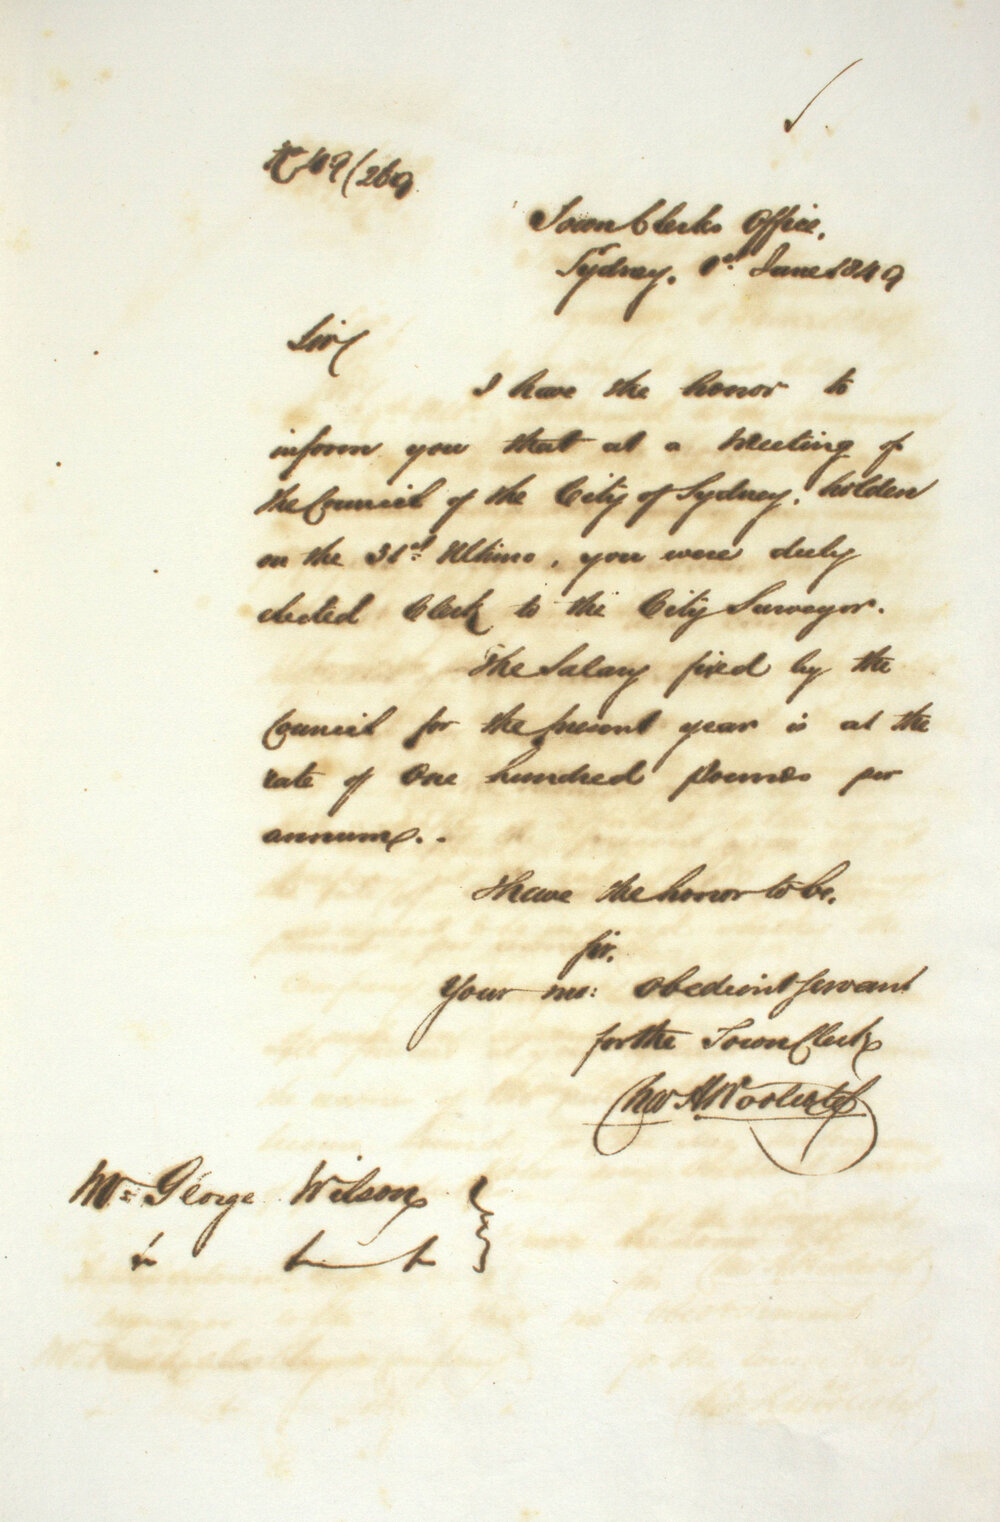 49/269
Town Clerks Office,
Sydney, 1st June 1849
Sir
I have the honor to
inform you that at a Meeting of
the Council of the City of Sydney, holden
on the 31st Ultimo, you were duly
elected Clerk to the City Surveyor.
The Salary fixed by the
Council for the present year is at the
rate of One hundred pounds per
annum..
I have the honor to be,
Sir,
Your mo: obedient servant
for the Town Clerk
Chas H Woolcott
Mr George Wilson